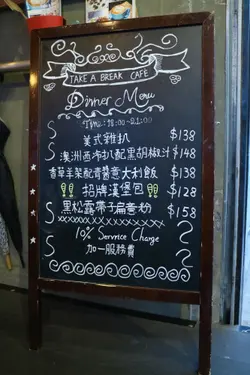 TAKE A BREAK CAFE
Dinner Menu
Time: 18:00~21:00
美式雞扒 $138
澳洲西冷扒配黑胡椒汁 $148
香草羊架配青醬意大利飯 $138
!! 招牌漢堡包 !! $128
黑松露帶子扁意粉 $158
XXXXXXXXXXXXXXXX
10% Service Charge
加一服務費